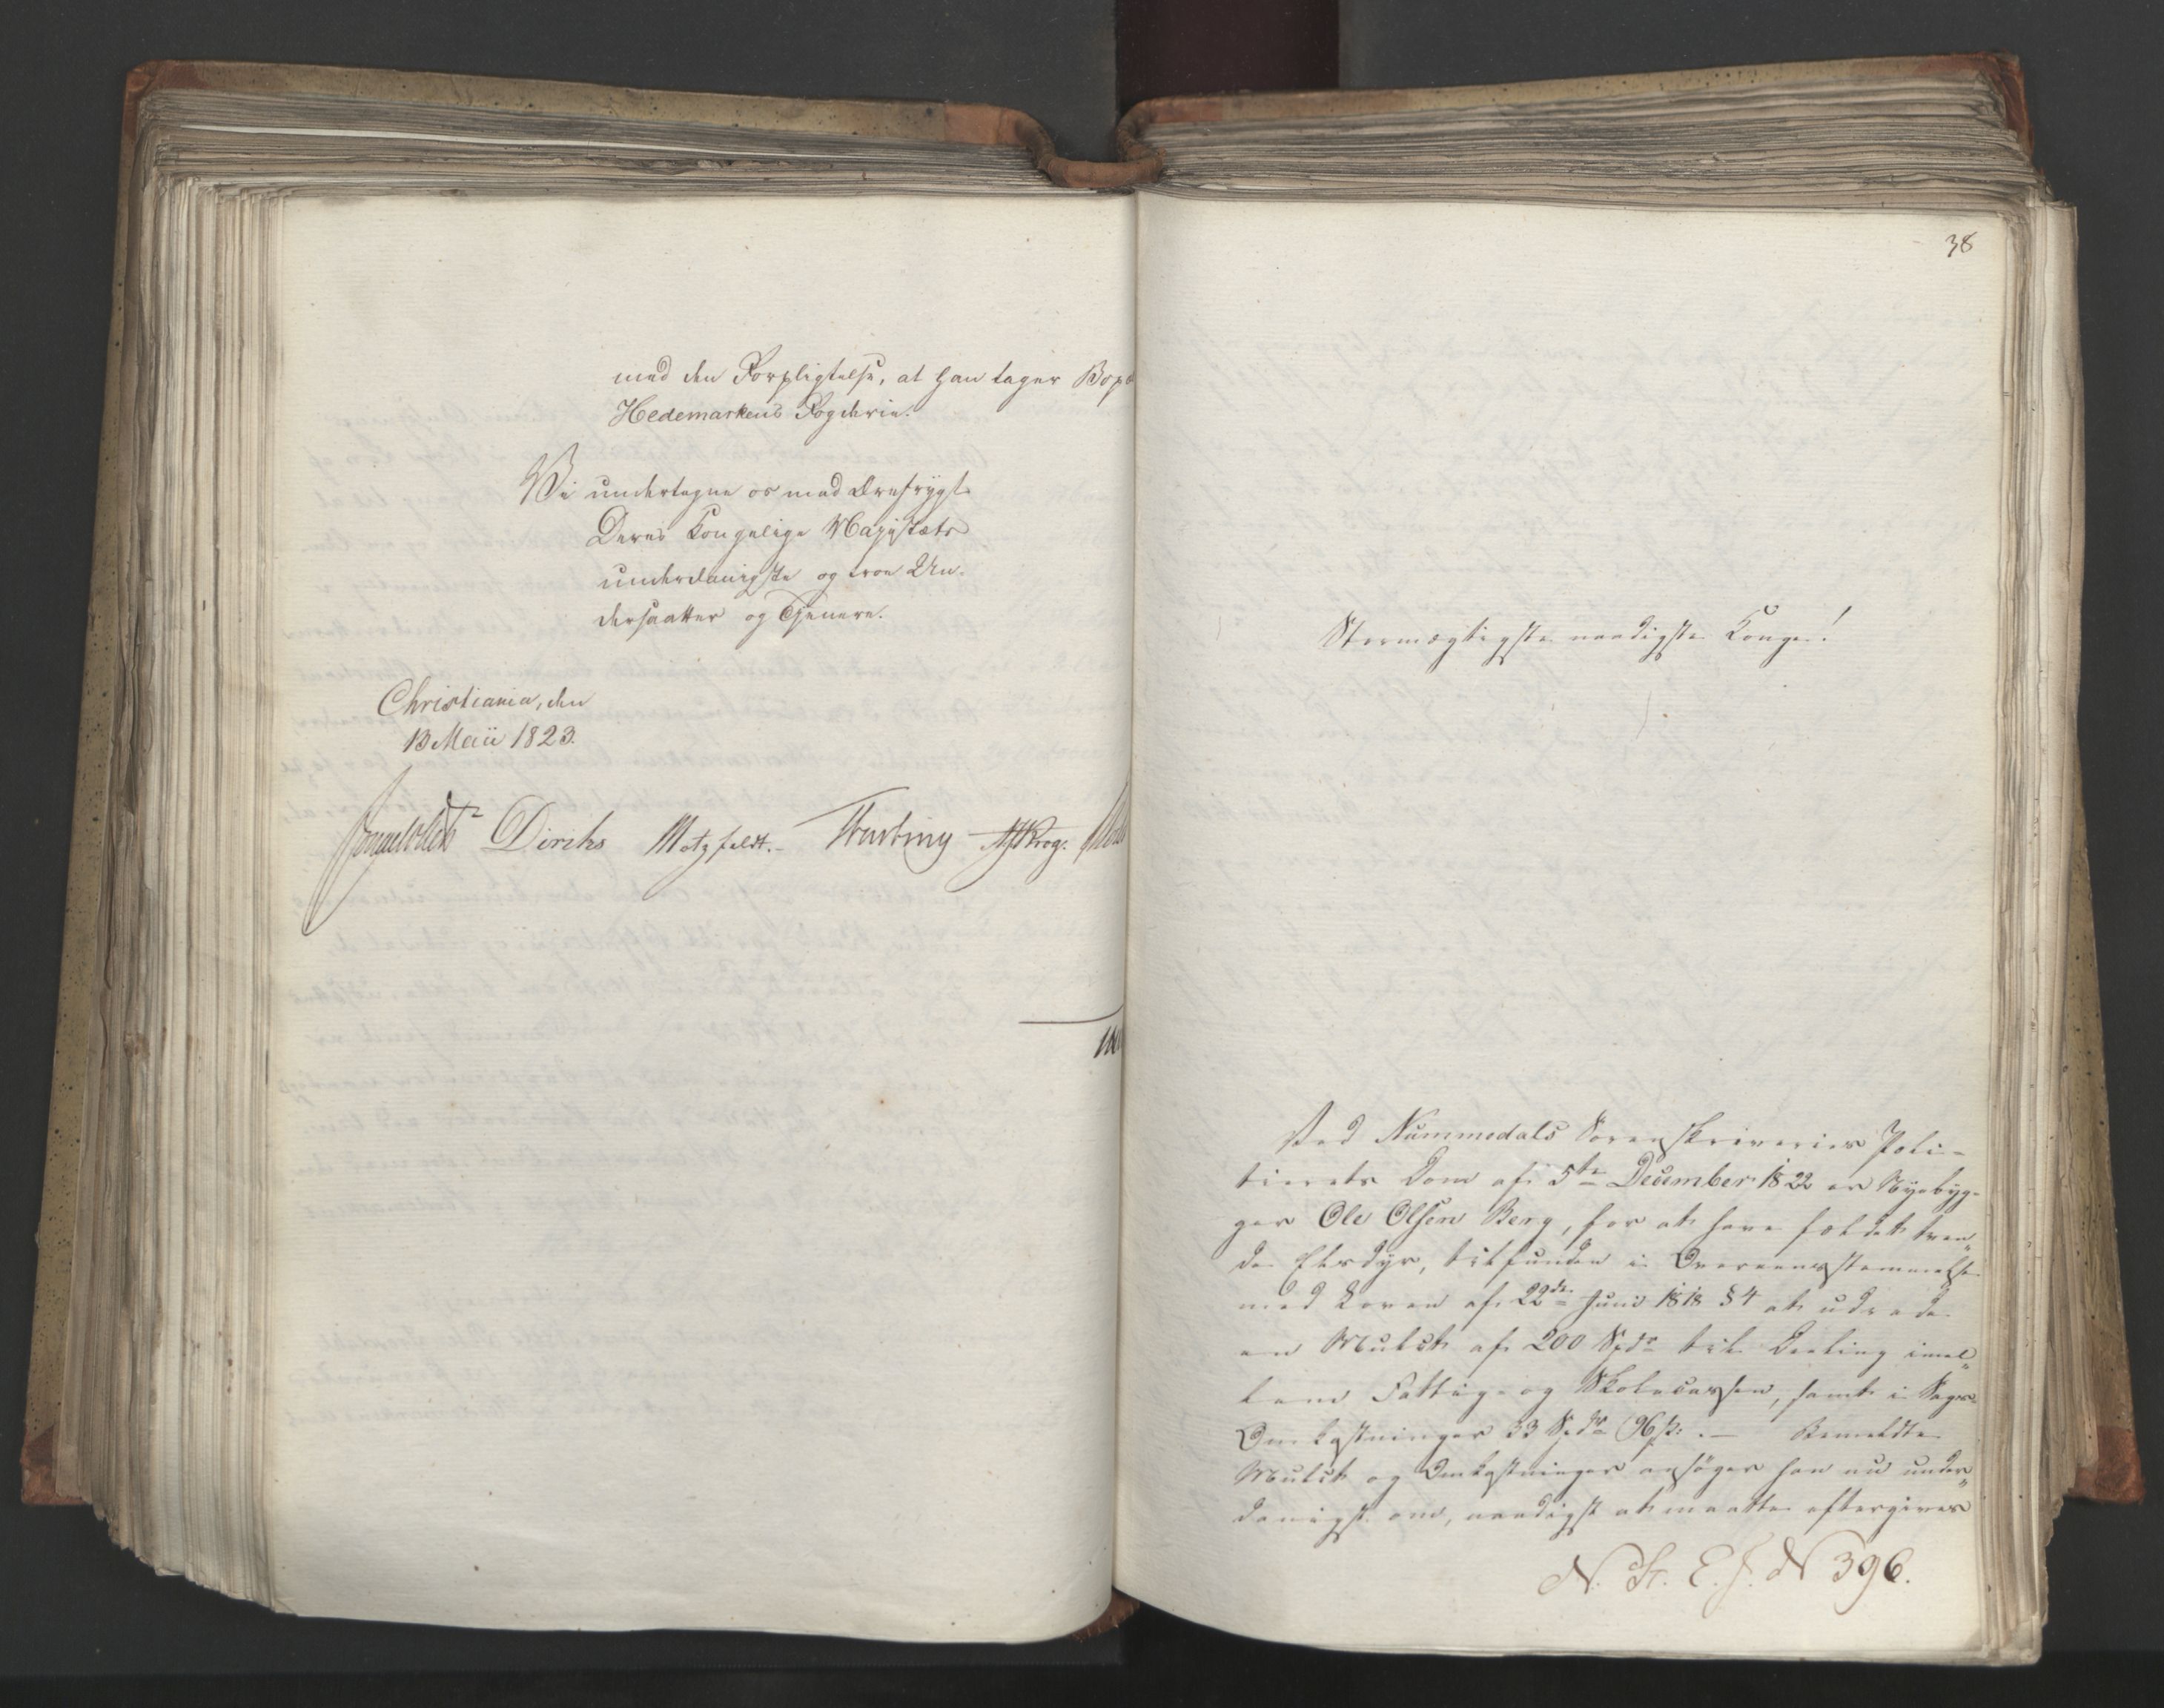 med den Forpligtelse, at han tager Bop
Hedemarkens Fogderie.
Vi undertegne os med Ærefrygt
Deres Kongelige Majestæts
underdanigste og troe Un-
dersaatter og Tjenere.
Christiania, den
13 Maii 1823.
Sommerfeldt Diriks Motzfeldt. Krog.
38
Stormægtigste naadigste Konge!
Ved Nummedals Sorenskriveries Poli-
tierets Dom af 5te December 1822 er Nyebyg-
ger Ole Olsen Berg, for at have fældet tven-
de Elsdyr, tilfunden i Overeensstemmelse
med Loven af 22de Juni 1818 § 4 at udrede
en Mulct af 200 Spdr til Deeling imel-
lem Fattig- og Skolecassen, samt i Sags-
Omkostninger 33 Spdr 96 s: .— Bemeldte
Mulct og Omkostninger ansøger han nu under-
danigst om, naadigst at maatte eftergives
N. St. E. J. N 396.